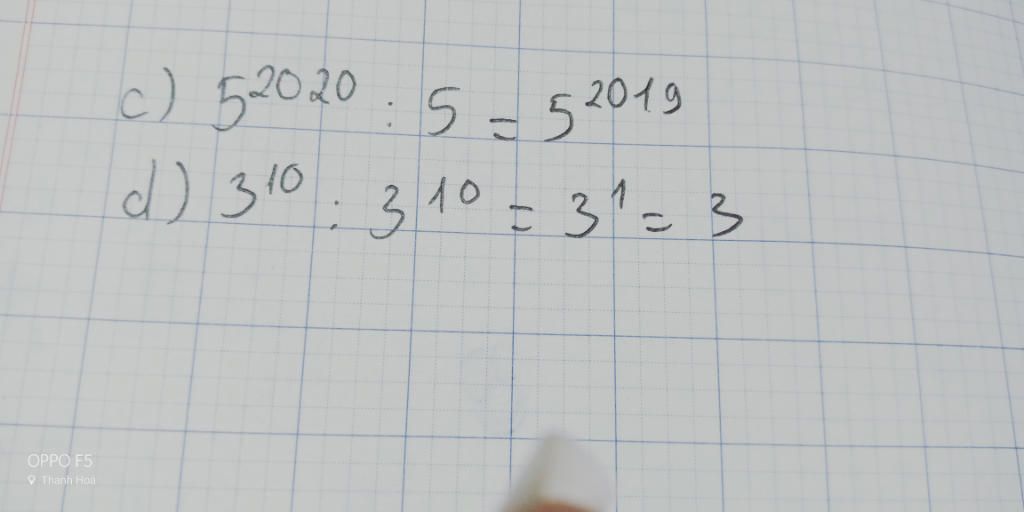 c) 5²⁰²⁰ : 5 = 5²⁰¹⁹
d) 3¹⁰ : 3¹⁰ = 3¹ = 3
OPPO F5
Thanh Hoá